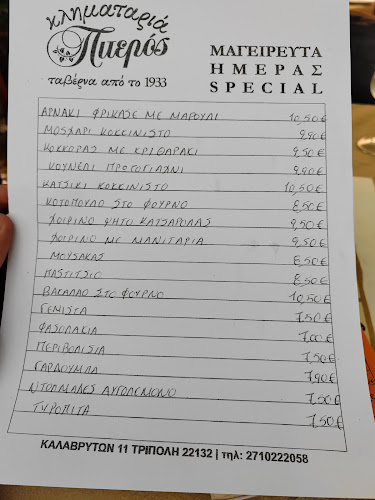 κληματαριά
Πιερός
ταβέρνα από το 1933
ΜΑΓΕΙΡΕΥΤΑ
ΗΜΕΡΑΣ
SPECIAL
ΑΡΝΑΚΙ ΦΡΙΚΑΣΕ ΜΕ ΜΑΡΟΥΛΙ 10,50€
ΜΟΣΧΑΡΙ ΚΟΚΚΙΝΙΣΤΟ 9,90€
ΚΟΚΚΟΡΑΣ ΜΕ ΚΡΙΘΑΡΑΚΙ 9,50€
ΚΟΥΝΕΛΙ ΠΡΩΤΟΓΙΑΧΝΙ 9,90€
ΚΑΤΣΙΚΙ ΚΟΚΚΙΝΙΣΤΟ 10,50€
ΚΟΤΟΠΟΥΛΟ ΣΤΟ ΦΟΥΡΝΟ 8,50€
ΧΟΙΡΙΝΟ ΨΗΤΟ ΚΑΤΣΑΡΟΛΑΣ 9,50€
ΧΟΙΡΙΝΟ ΜΕ ΜΑΝΙΤΑΡΙΑ 9,50€
ΜΟΥΣΑΚΑΣ 8,50€
ΠΑΣΤΙΤΣΙΟ 8,50€
ΒΑΚΑΛΑΟ ΣΤΟ ΦΟΥΡΝΟ 10,50€
ΓΕΜΙΣΤΑ 7,50€
ΦΑΣΟΛΑΚΙΑ 7,00€
ΠΕΡΙΒΟΛΙΣΙΑ 7,50€
ΓΑΡΔΟΥΜΠΑ 7,90€
ΝΤΟΛΜΑΔΕΣ ΑΥΓΟΛΕΜΟΝΟ 7,50€
ΤΥΡΟΠΙΤΑ 7,50€
ΚΑΛΑΒΡΥΤΩΝ 11 ΤΡΙΠΟΛΗ 22132 | τηλ: 2710222058